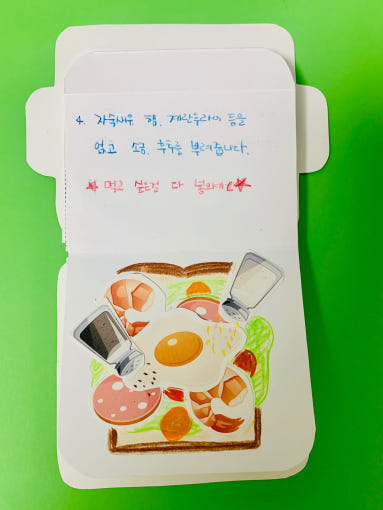 4. 자숙새우, 햄, 계란후라이 등을
얹고 소금, 후추를 뿌려줍니다.
★먹고 싶은걸 다 넣하세요★